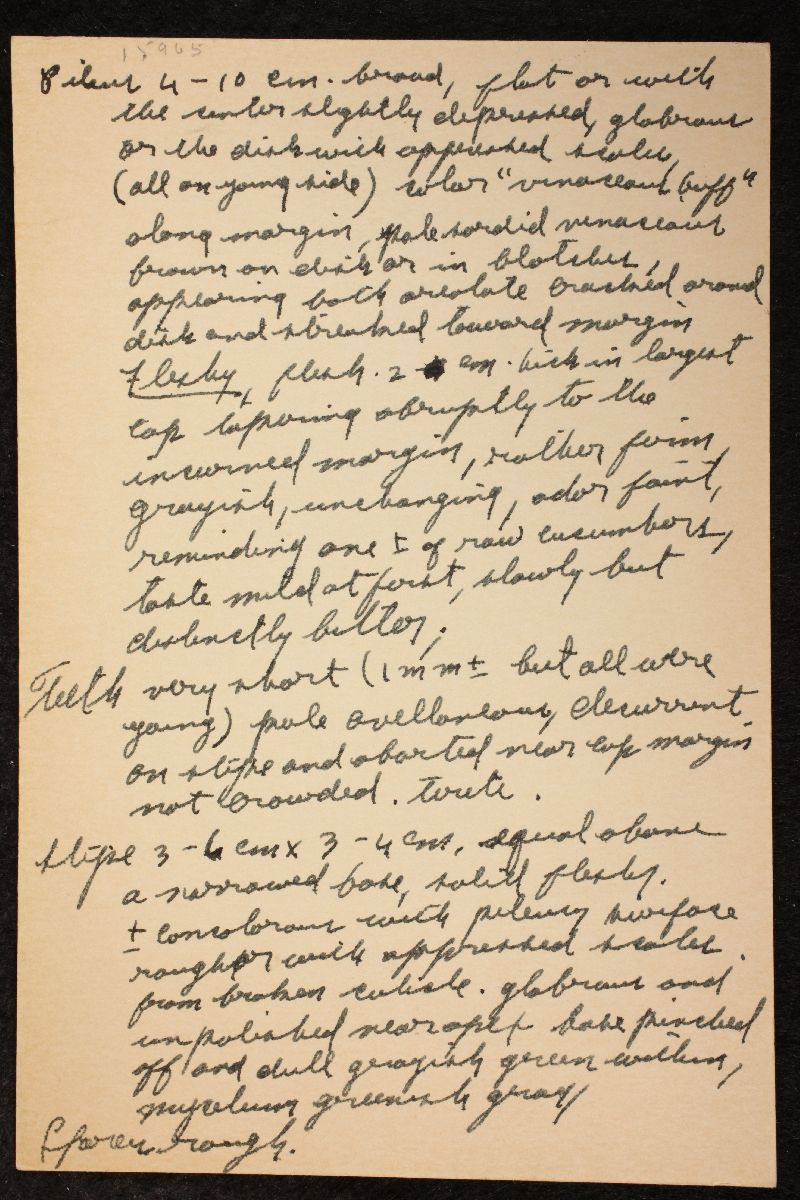 15965
Pileus 4 - 10 cm. broad, flat or with
the center slightly depressed, glabrous
or the disk with appressed scales,
(all on young side) color "vinaceous buff"
along margin, pale sordid vinaceous
brown on disk or in blotches,
appearing both areolate cracked around
disk and streaked toward margin
Fleshy, flesh. 2 cm. thick in largest
cap tapering abruptly to the
incurved margin, rather firm,
grayish, unchanging, odor faint,
reminding one ± of raw cucumbers,
taste mild at first, slowly but
distinctly bitter,
Teeth very short (1 mm ± but all were
young) pale avellaneous, decurrent
on stipe and aborted near cap margin
not crowded. terete.
Stipe 3 - 6 cm x 3 - 4 cm, equal above
a narrowed base, solid fleshy.
± concolorous with pileus surface
rough or with appressed scales.
from broken cuticle. glabrous and
unpolished near apex base pinched
off and dull grayish green within,
mycelium greenish gray,
Spores rough.